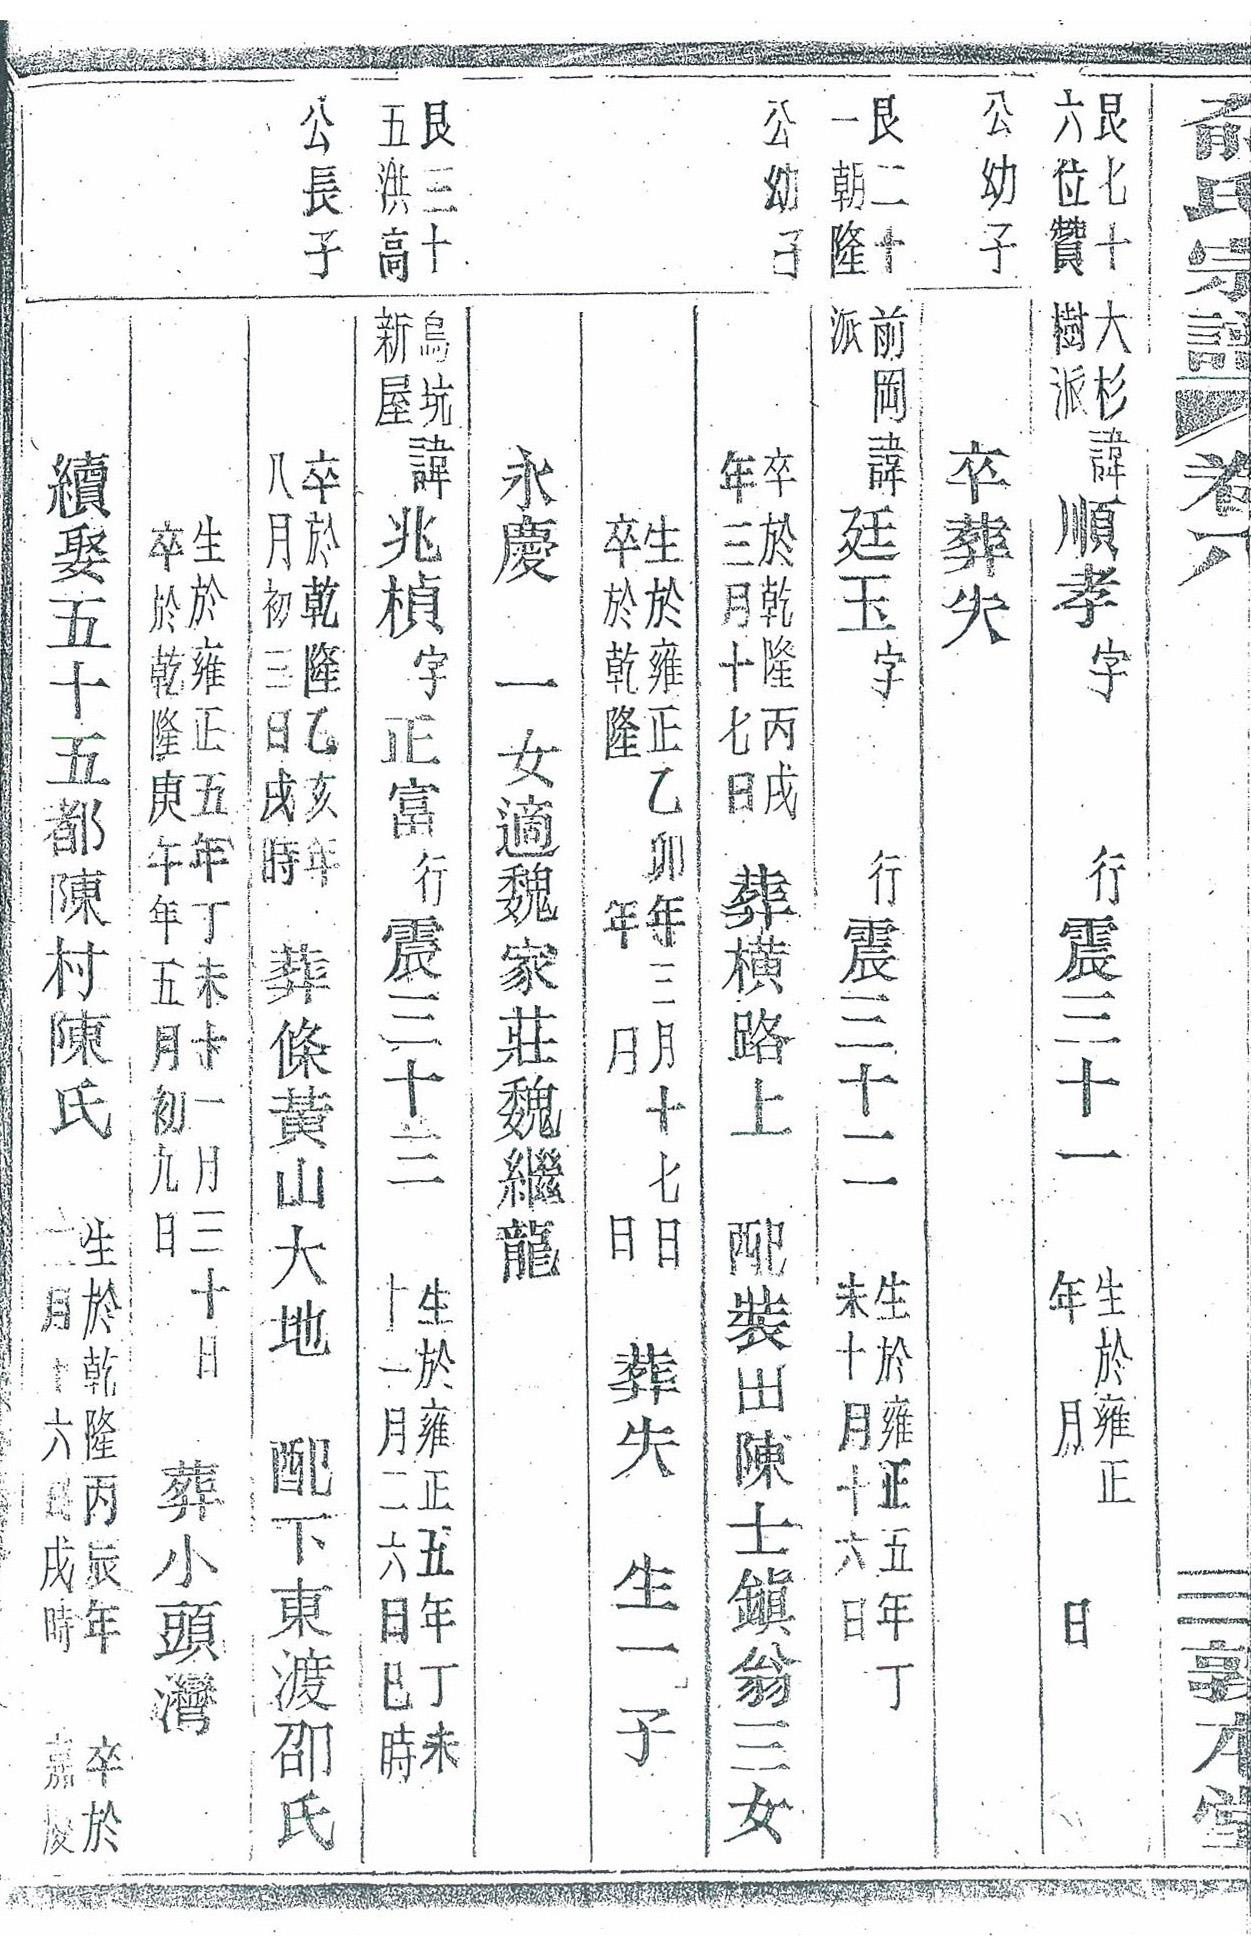 俞氏宗譜 卷六 三 敦本堂
艮七十六位贊 大杉樹派 諱順孝 字 行震三十一 生於雍正 年 月 日
公幼子 卒葬失
艮二十一朝隆 前岡派 諱廷玉 字 行震三十二 生於雍正五年丁未十月十六日
公幼子 卒於乾隆丙戌年三月十七日 葬橫路上 配裝田陳士鎮翁三女
生於雍正乙卯年三月十七日卒於乾隆 年 月 日 葬失 生一子
永慶 一女適魏家莊魏繼龍
艮三十五洪高 烏坑新屋 諱兆楨 字正富 行震三十三 生於雍正五年丁未十一月二六日巳時
公長子 卒於乾隆乙亥年八月初三日戌時 葬條黃山大地 配下東渡邵氏
生於雍正五年丁未十一月三十日卒於乾隆庚午年五月初九日 葬小頭灣
續娶五十五都陳村陳氏 生於乾隆丙辰年十一月十六日戌時 卒於嘉慶